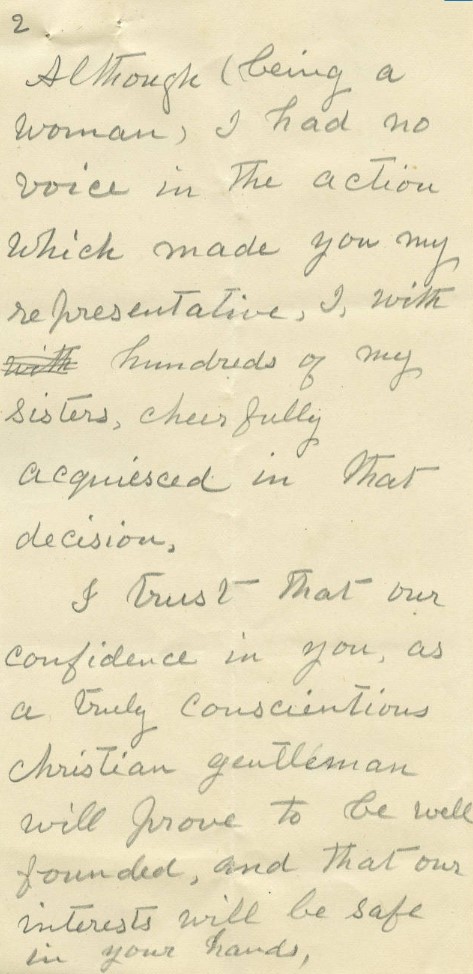 2
Although (being a
woman) I had no
voice in the action
which made you my
representative, I, with
with hundreds of my
sisters, cheerfully
acquiesced in that
decision.
I trust that our
confidence in you, as
a truly conscientious
Christian gentleman
will prove to be well
founded, and that our
interests will be safe
in your hands,